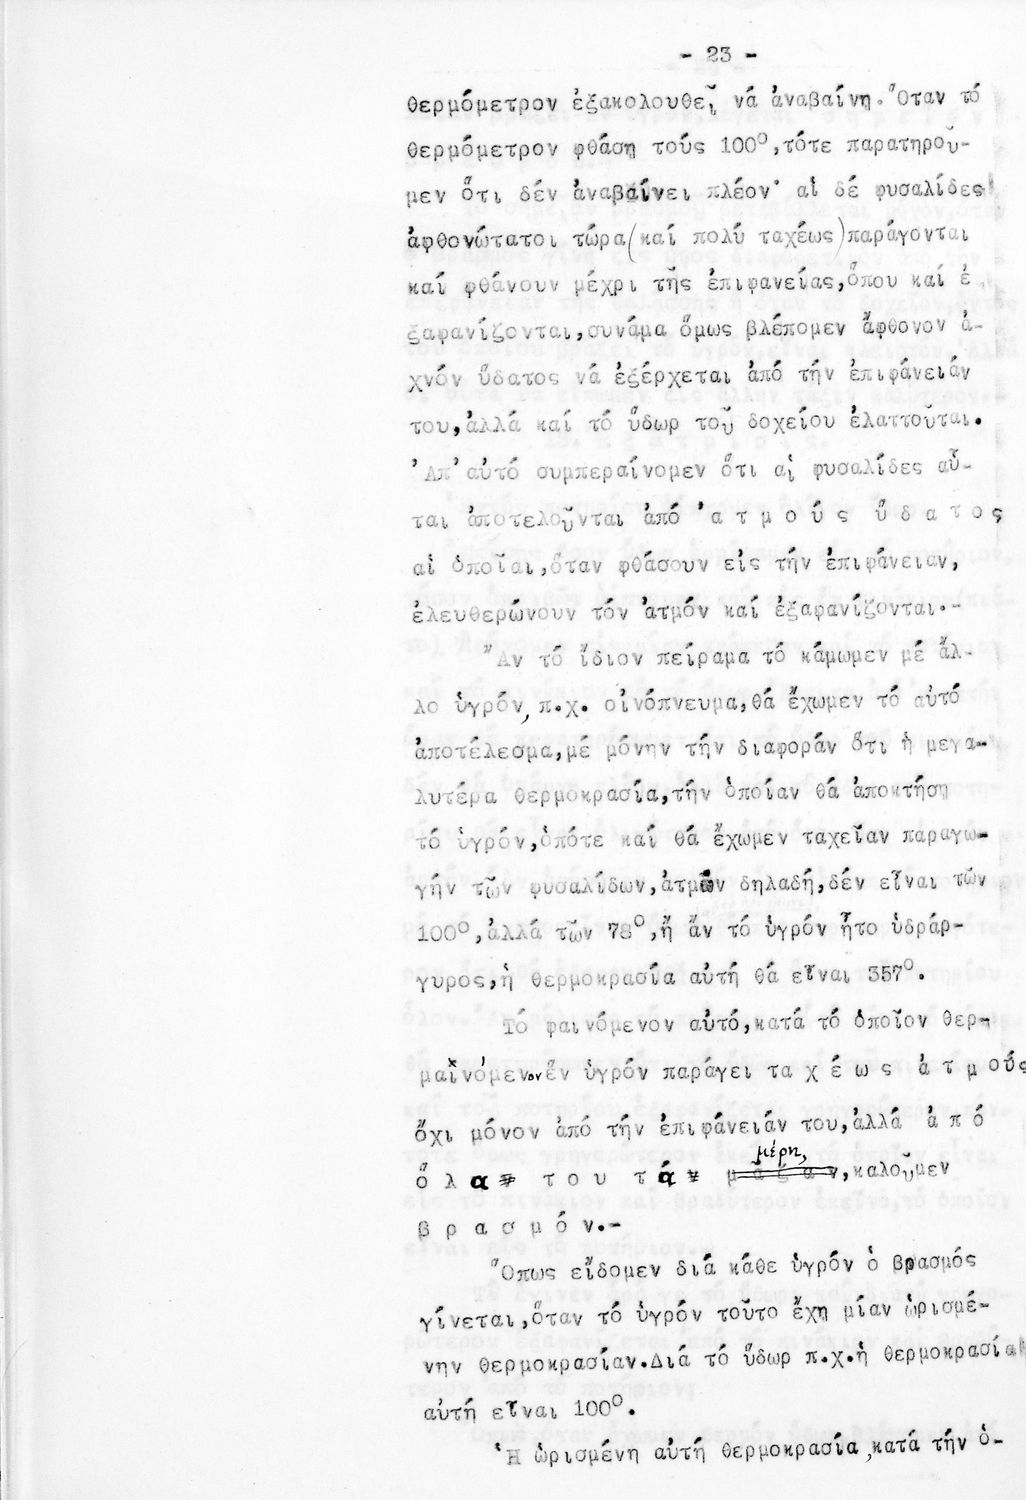 - 23 -
θερμόμετρον ἐξακολουθεῖ νά ἀναβαίνη. Ὅταν τό
θερμόμετρον φθάση τούς 100°, τότε παρατηροῦ-
μεν ὅτι δέν ἀναβαίνει πλέον· αἱ δέ φυσαλίδες
ἀφθονώταται τώρα (καί πολύ ταχέως) παράγονται
καί φθάνουν μέχρι τῆς ἐπιφανείας, ὅπου καί ἐ-
ξαφανίζονται, συνάμα ὅμως βλέπομεν ἄφθονον ἀ-
χνόν ὕδατος νά ἐξέρχεται ἀπό τήν ἐπιφάνειάν
του, ἀλλά καί τό ὕδωρ τοῦ δοχείου ἐλαττοῦται.
Ἀπ' αὐτό συμπεραίνομεν ὅτι αἱ φυσαλίδες αὗ-
ται ἀποτελοῦνται ἀπό ἀ τ μ ο ύ ς ὕ δ α τ ο ς
αἱ ὁποῖαι, ὅταν φθάσουν εἰς τήν ἐπιφάνειαν,
ἐλευθερώνουν τόν ἀτμόν καί ἐξαφανίζονται.-
Ἄν τό ἴδιον πείραμα τό κάμωμεν μέ ἄλ-
λο ὑγρόν, π.χ. οἰνόπνευμα, θά ἔχωμεν τό αὐτό
ἀποτέλεσμα, μέ μόνην τήν διαφοράν ὅτι ἡ μεγα-
λυτέρα θερμοκρασία, τήν ὁποίαν θά ἀποκτήση
τό ὑγρόν, ὁπότε καί θά ἔχωμεν ταχεῖαν παραγω-
γήν τῶν φυσαλίδων, ἀτμῶν δηλαδή, δέν εἶναι τῶν
100°, ἀλλά τῶν 78°, ἤ ἄν τό ὑγρόν ἦτο ὑδράρ-
γυρος, ἡ θερμοκρασία αὐτή θά εἶναι 357°.
Τό φαινόμενον αὐτό, κατά τό ὁποῖον θερ-
μαινόμενον ἕν ὑγρόν παράγει τα χ έ ω ς ἀ τ μ ούς
ὄχι μόνον ἀπό τήν ἐπιφάνειάν του, ἀλλά ἀ π ό
ὅ λ α τ ο υ τ ά μέρη, καλοῦμεν
β ρ α σ μ ό ν.-
Ὅπως εἴδομεν διά κάθε ὑγρόν ὁ βρασμός
γίνεται, ὅταν τό ὑγρόν τοῦτο ἔχη μίαν ὡρισμέ-
νην θερμοκρασίαν. Διά τό ὕδωρ π.χ. ἡ θερμοκρασία
αὐτή εἶναι 100°.
Ἡ ὡρισμένη αὐτή θερμοκρασία, κατά τήν ὁ-